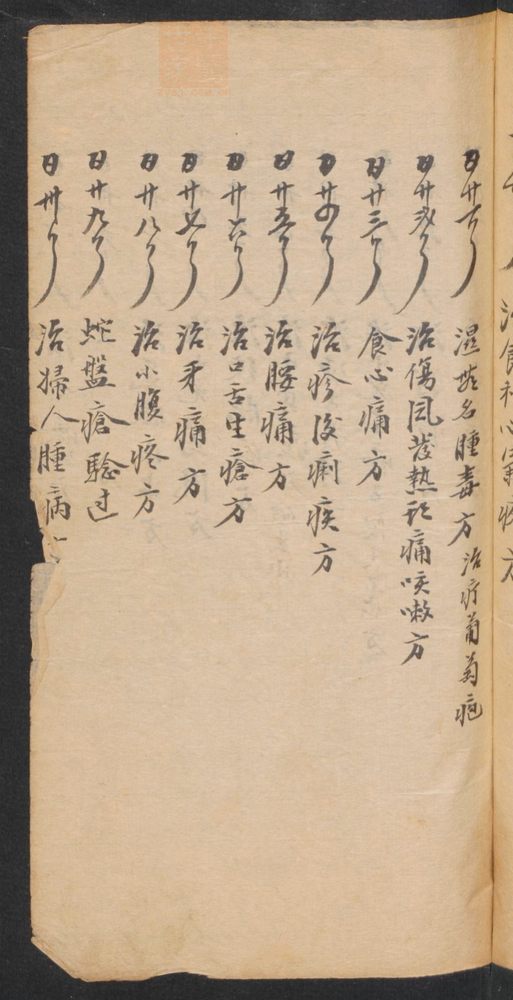 日廿一 湿𤺋名腫毒方 治疔葡萄疱
日廿弍 治傷風发熱頭痛咳嗽方
日廿三 食心痛方
日廿四 治疹後痢疾方
日廿五 治腰痛方
日廿六 治口舌生瘡方
日廿七 治牙痛方
日廿八 治小腹疼方
日廿九 蛇盤瘡驗过
日卅 治婦人腫病